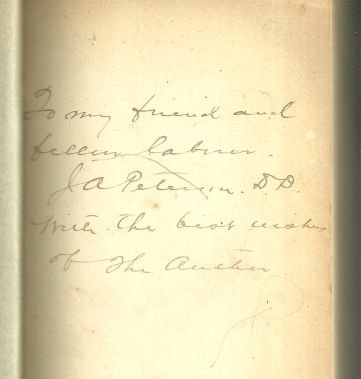 To my friend and
fellow laborer.
J A Peterson. D.D.
With the best wishes
of the Author